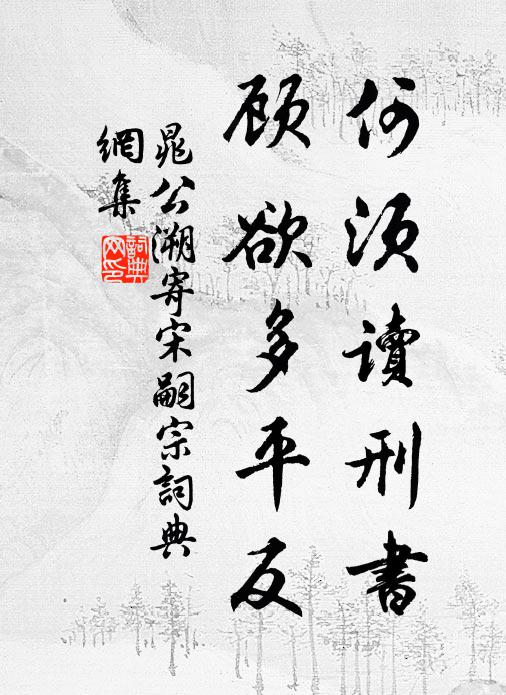 何須讀刑書
顧欲多平反
晁公溯寄宋嗣宗詞典
網集
詞典
网印